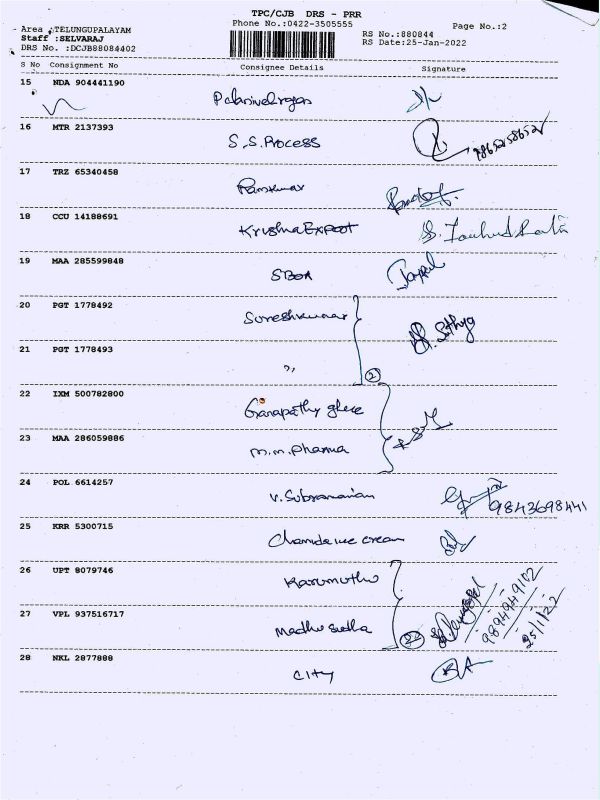 TPC/CJB DRS - PRR
Area :TELUNGUPALAYAM
Phone No.:0422-3505555
Page No.:2
Staff :SELVARAJ
RS No.:880844
DRS No. :DCJB88084402
RS Date:25-Jan-2022
S No Consignment No Consignee Details Signature
15 NDA 904441190
16 MTR 2137393 S.S.Process 9865258652
17 TRZ 65340458 Ramkumar
18 CCU 14188691 Krishna Export
19 MAA 285599848 SBOA
20 PGT 1778492 Sureshkumar
21 PGT 1778493 ,, 2
22 IXM 500782800 Ganapathy ghee
23 MAA 286059886 M.M. Pharma
24 POL 6614257 V. Subramanian 9843698441
25 KRR 5300715 ice cream
26 UPT 8079746 Karumuthu 9894949102
27 VPL 937516717 Madhu sudha 2 25/1/22
28 NKL 2877888 City